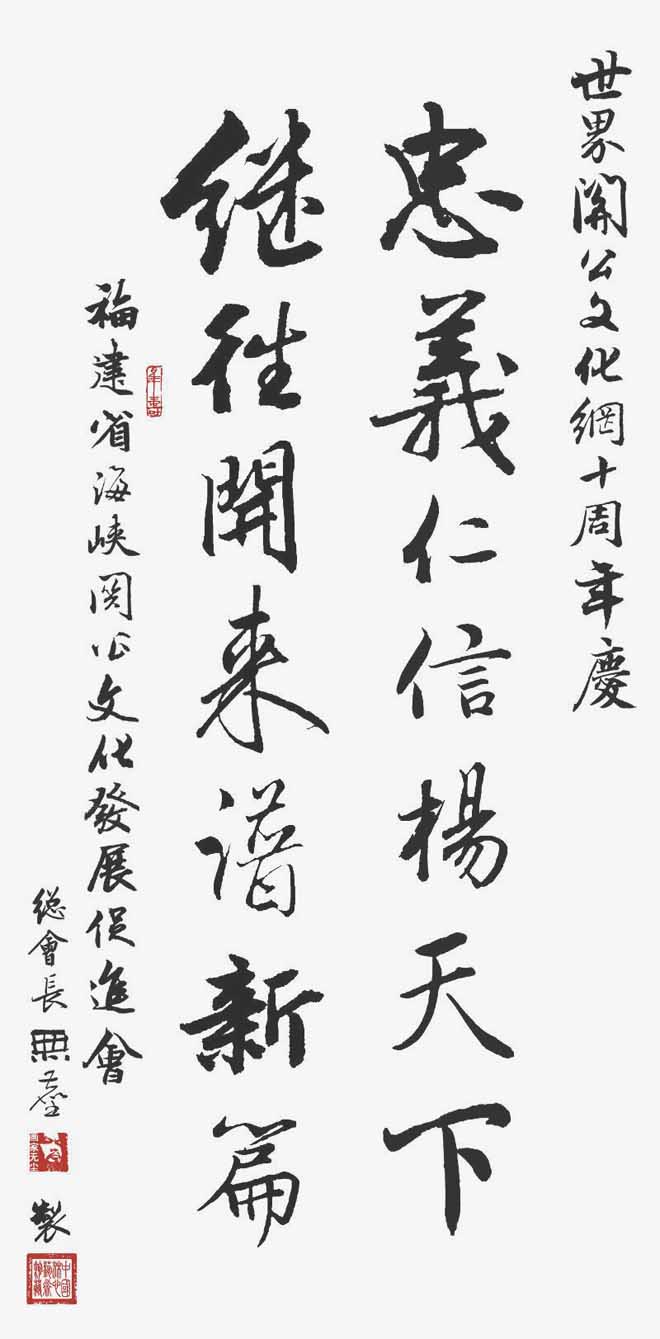 世界關公文化網十周年慶
忠義仁信楊天下
继往開来谱新篇
福建省海峡関公文化發展促進會
總會長
製